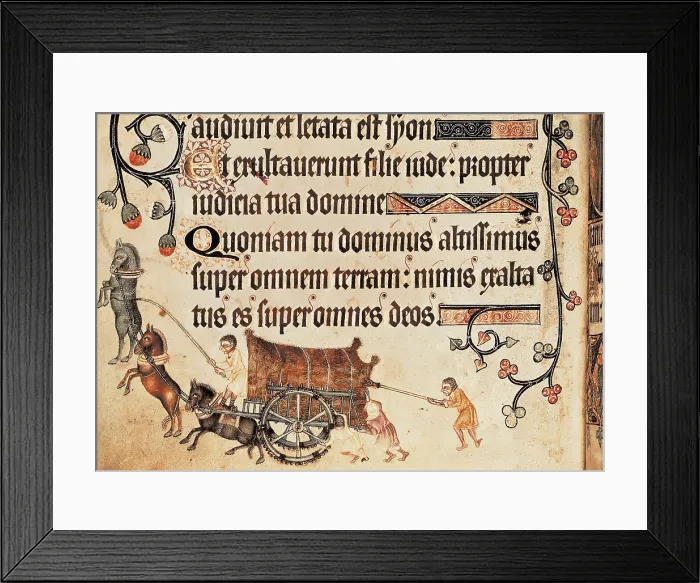 audiuit et letata est syon
Et exultauerunt filie iude: propter
iudicia tua domine
Quoniam tu dominus altissimus
super omnem terram: nimis exalta
tus es super omnes deos.